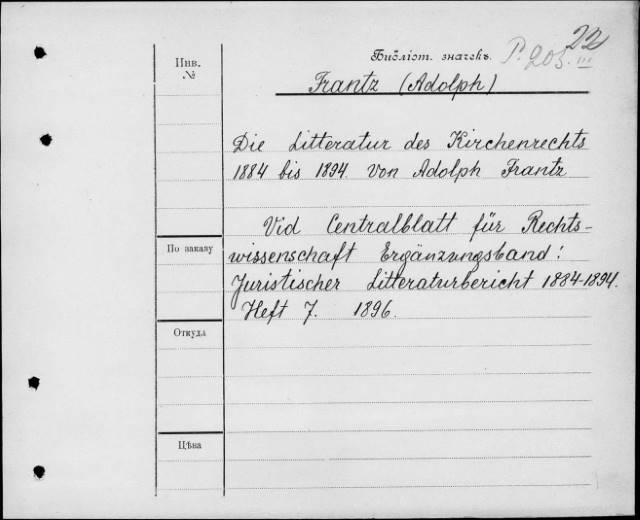 22
Инв.
№
Библіот. значекъ.
P. 203. III
Frantz (Adolph)
Die Litteratur des Kirchenrechts
1884 bis 1894. Von Adolph Frantz
Vid Centralblatt für Rechts-
По заказу
wissenschaft Ergänzungsband:
Juristischer Litteraturbericht 1884-1894.
Heft 7. 1896.
Откуда
Цѣна